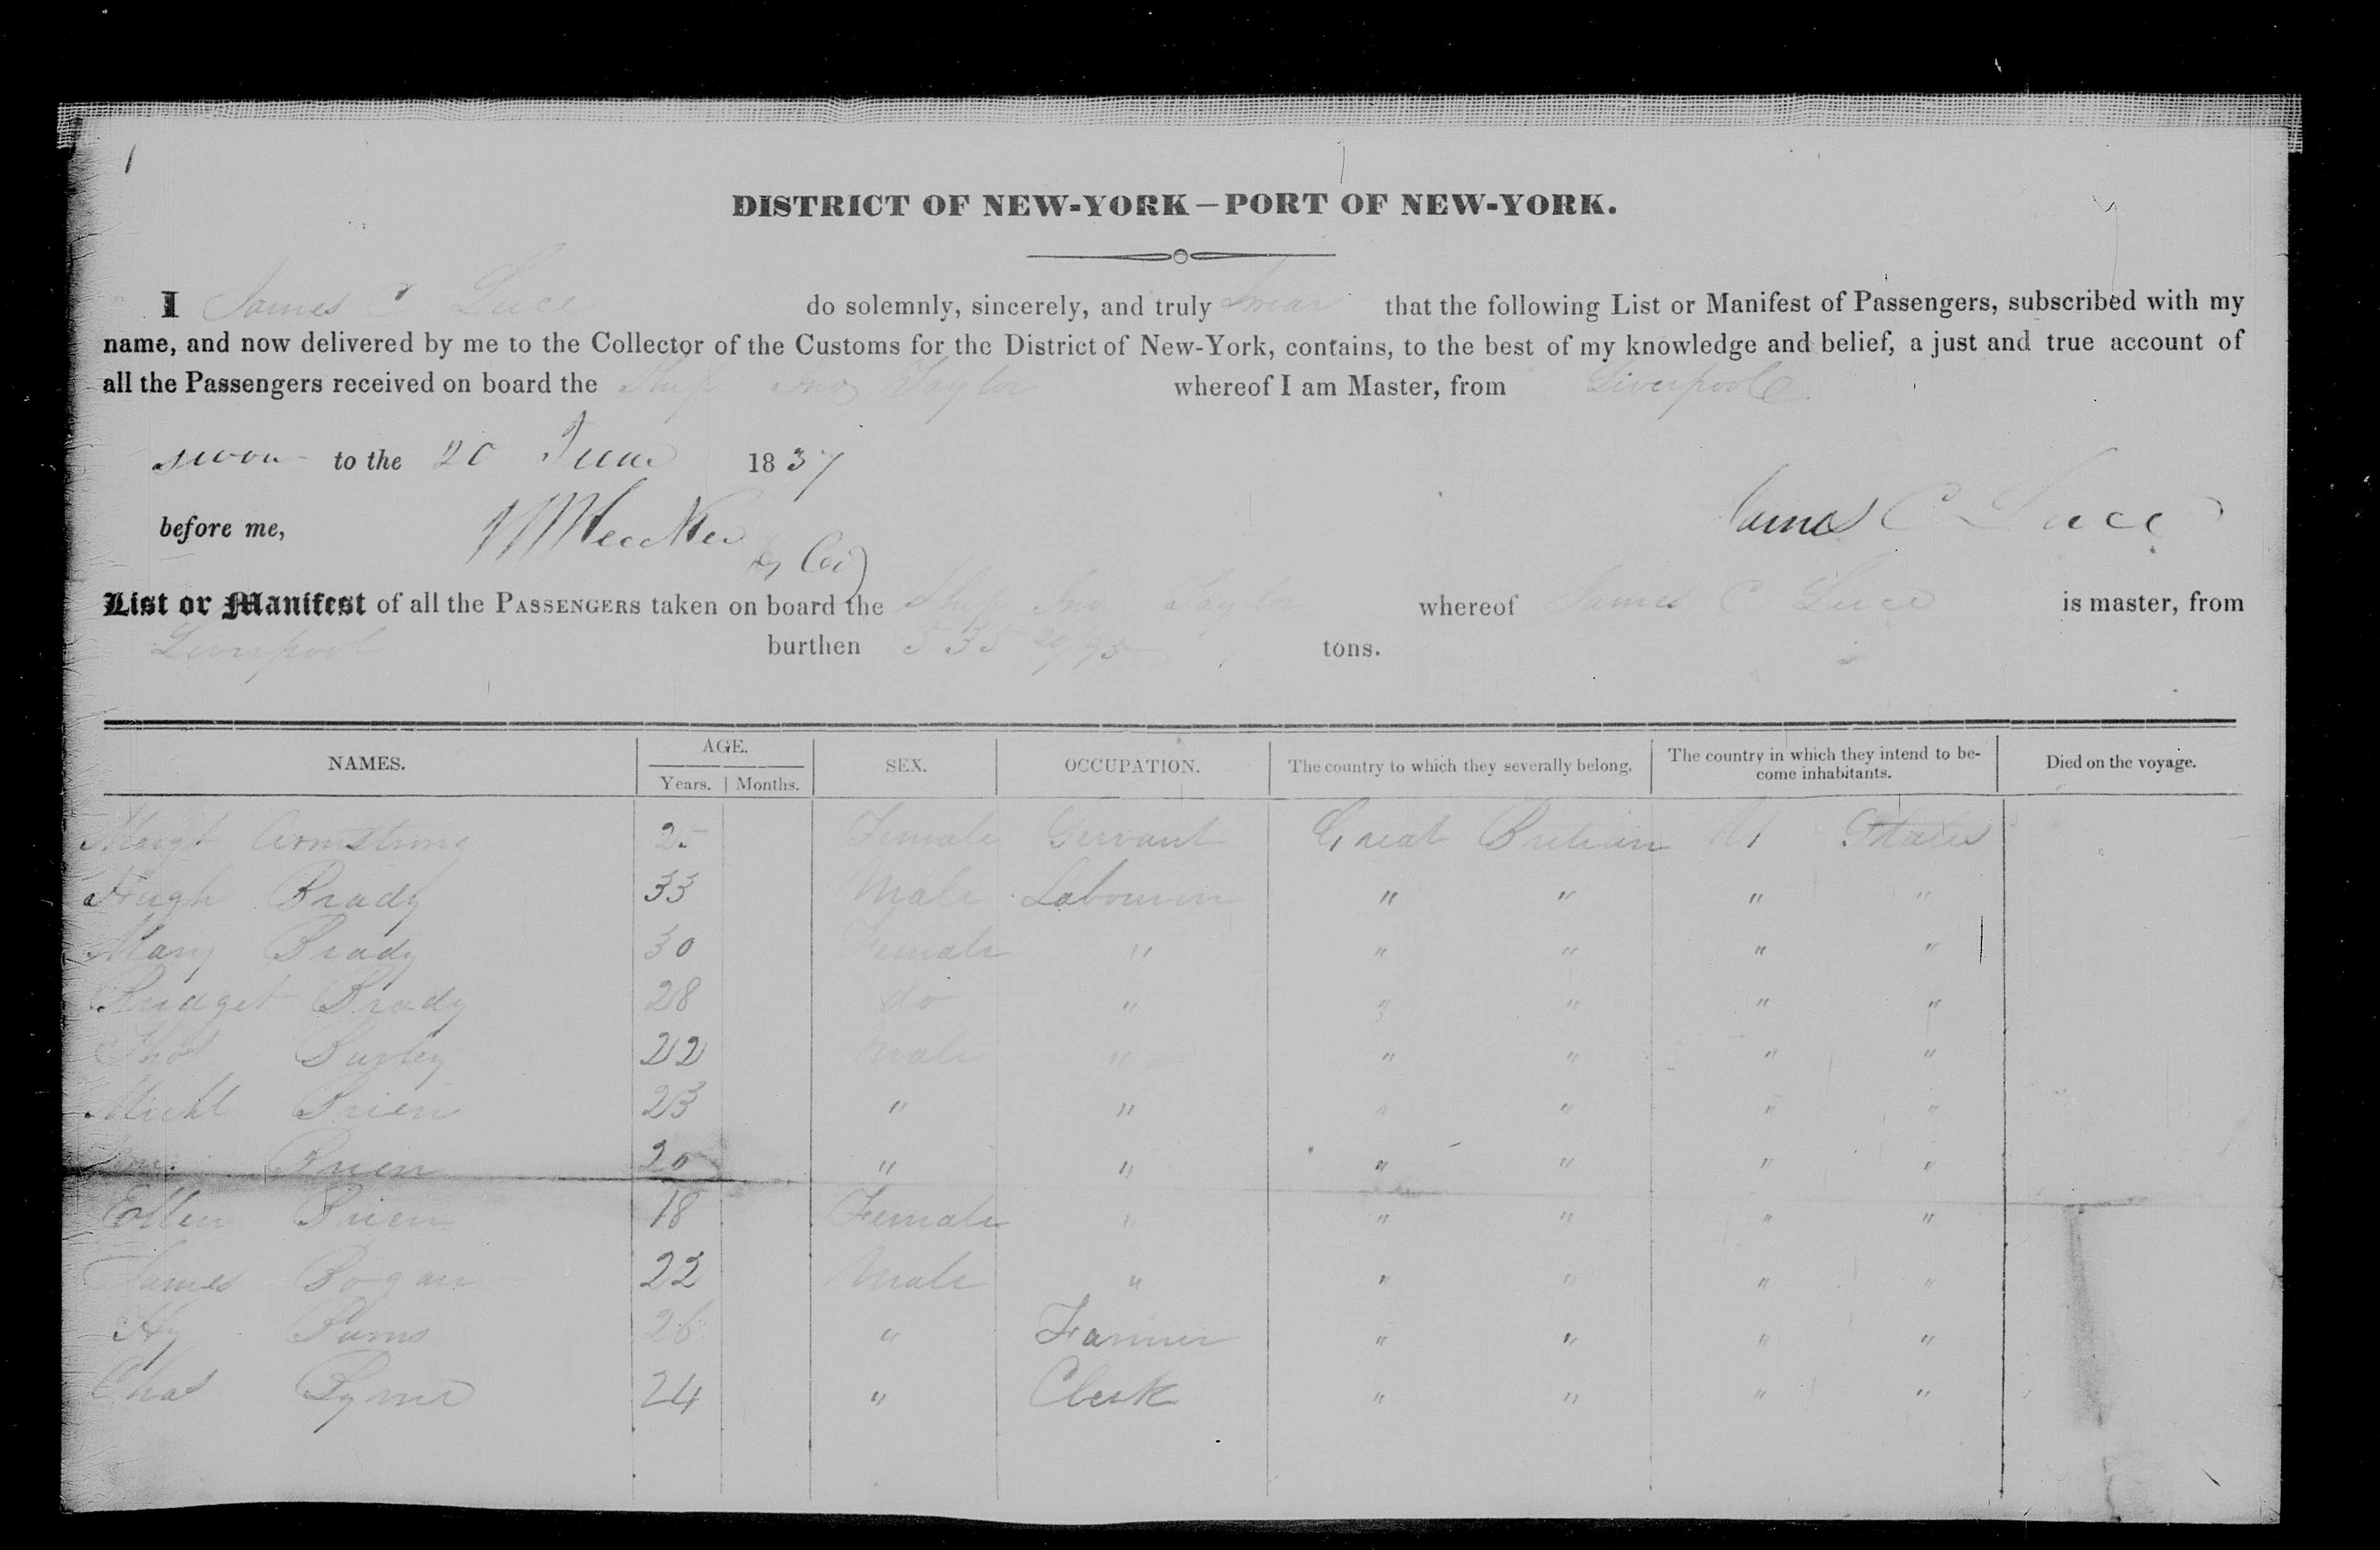 DISTRICT OF NEW-YORK—PORT OF NEW-YORK.
I James C Luce do solemnly, sincerely, and truly Swear that the following List or Manifest of Passengers, subscribed with my
name, and now delivered by me to the Collector of the Customs for the District of New-York, contains, to the best of my knowledge and belief, a just and true account of
all the Passengers received on board the Ship Jno Taylor whereof I am Master, from Liverpool
sworn to the 20 June 1837
James C Luce
before me,
List or Manifest of all the PASSENGERS taken on board the Ship Jno Taylor whereof James C Luce is master, from
Liverpool burthen 535 20/95 tons.
NAMES. AGE. Years. Months. SEX. OCCUPATION. The country to which they severally belong. The country in which they intend to become inhabitants. Died on the voyage.
Margt Armstrong 25 Female Servant Great Britian U States
Hugh Brady 33 Male Labourer " " " "
Mary Brady 30 Female " " " " "
Bridget Brady 28 do " " " " "
Thos 22 Male " " " " "
Michl Brien 23 " " " " " "
Brien 20 " " " " " "
Ellen Brien 18 Female " " " " "
James Bogan 22 Male " " " " "
Hy 26 " Farmer " " " "
Chas Byrne 24 " Clerk " " " "